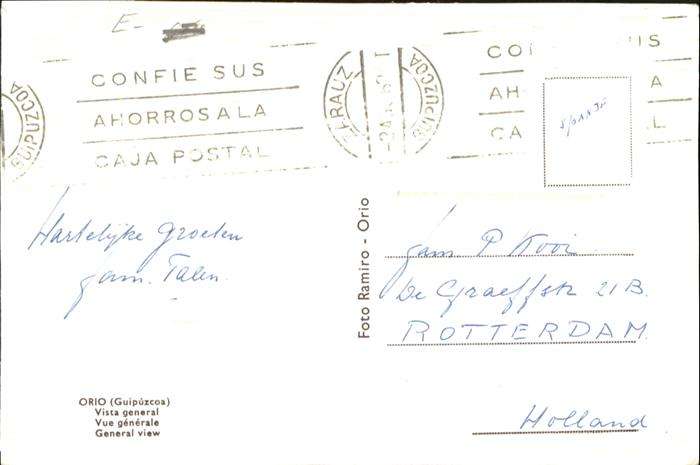 E-
CONFIE SUS
AHORROS A LA
CAJA POSTAL
ZARAUZ
GUIPUZCOA
GUIPUZCOA
CO US
AH A
CA L
SPANJE
Hartelijke Groeten
fam. Talen.
Foto Ramiro - Orio
fam P Kooi
De Graeffstr 21 B.
ROTTERDAM.
Holland
ORIO (Guipúzcoa)
Vista general
Vue générale
General view